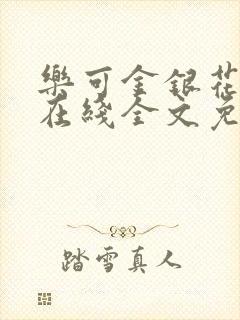 樂可金銀花
在綫全文免
踏雪真人